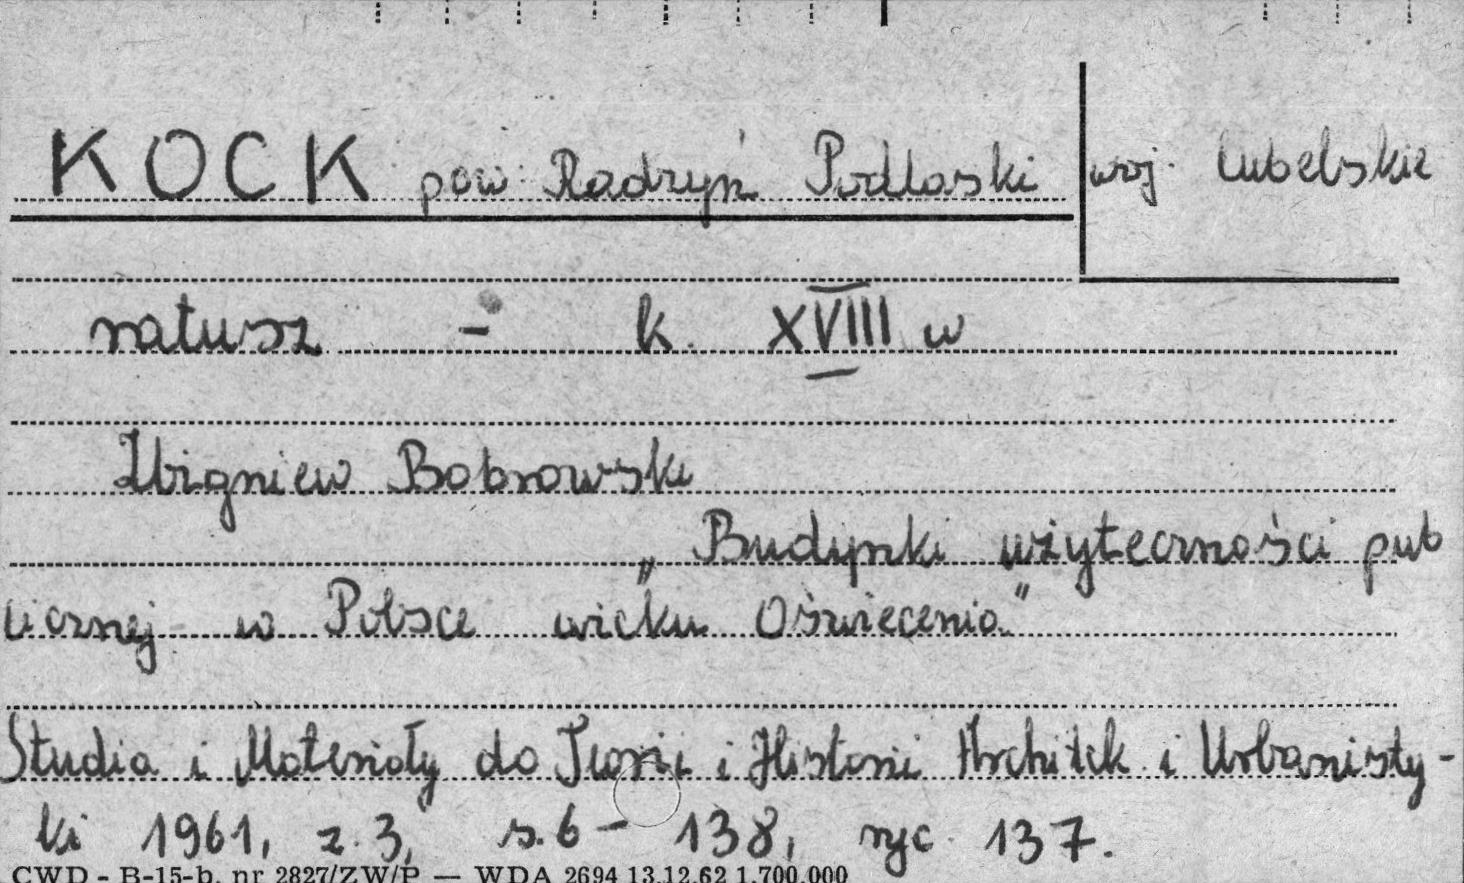 KOCK pow. Radzyń Podlaski woj. lubelskie
ratusz - k. XVIII w
Zbigniew Bobrowski
„Budynki użyteczności pub
licznej w Polsce wieku Oświecenia"
Studia i Materiały do Teorii i Historii Architek i Urbanisty-
ki 1961, z. 3, s. 6 - 138, ryc. 137.
CWD - B-15-b. nr 2827/ZW/P — WDA 2694 13.12.62 1.700.000